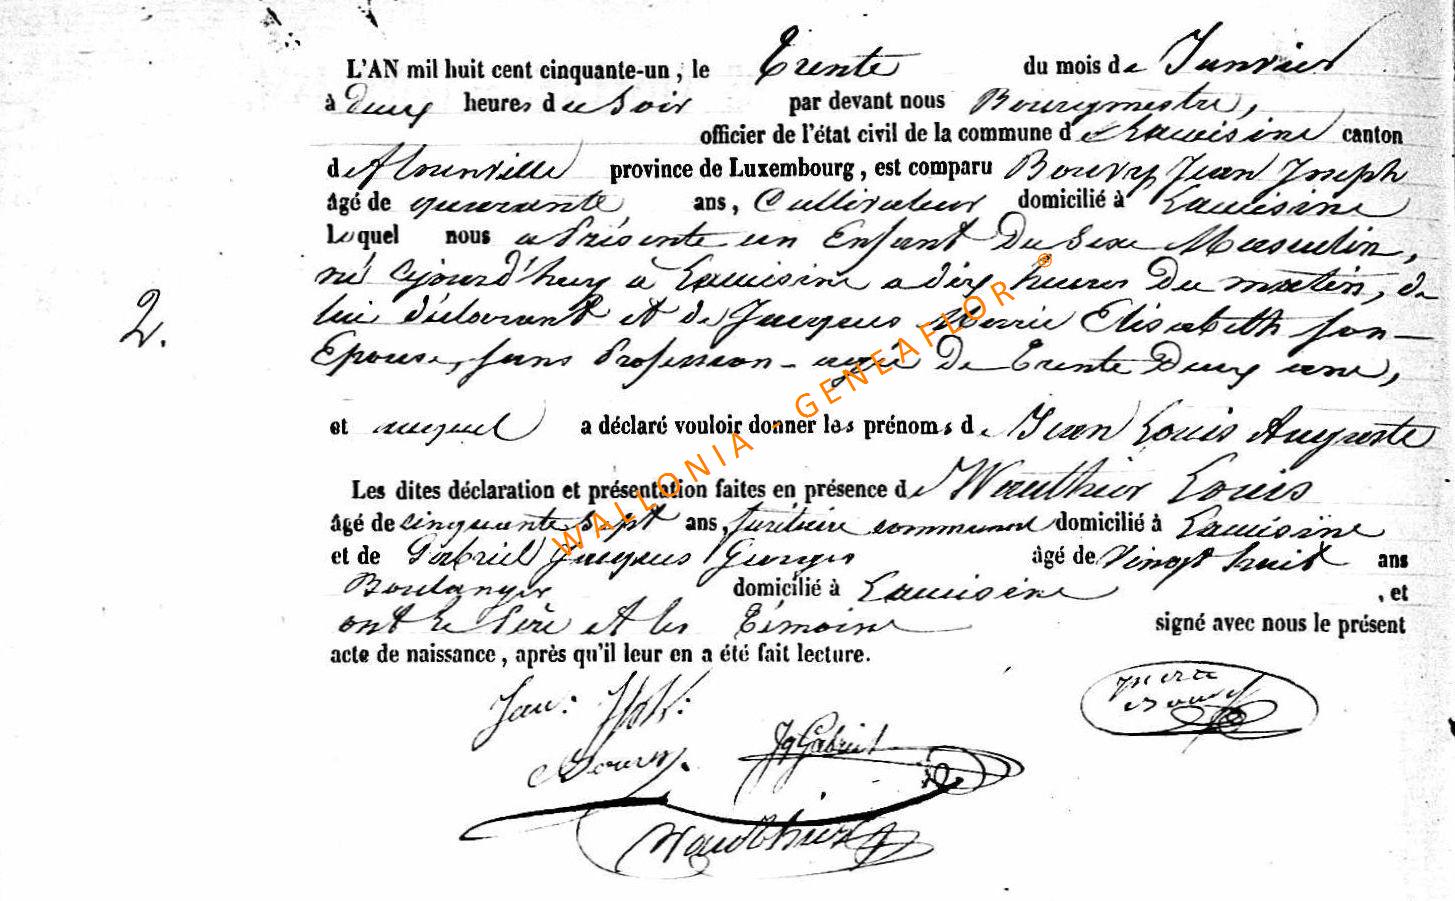 L'AN mil huit cent cinquante-un, le Trente du mois de Janvier
à deux heures du Soir par devant nous Bourgmestre,
officier de l'état civil de la commune de Lacuisine canton
de Florenville province de Luxembourg, est comparu Bouvry Jean Joseph
âgé de quarante ans, Cultivateur domicilié à Lacuisine
Lequel nous a Présenté un Enfant Du Sexe Masculin,
né cejourd'huy à Lacuisine a dix heures Du matin, de
lui déclarant et de Jacques Marie Elisabeth Son
Epouse, sans Profession - agée De Trente Deux ans,
et auquel a déclaré vouloir donner les prénoms de Jean Louis Auguste
2.
Les dites déclaration et présentation faites en présence de Wauthier Louis
âgé de cinquante Sept ans, communal domicilié à Lacuisine
et de Gabriel Jacques Georges âgé de Vingt huit ans
Boulanger domicilié à Lacuisine, et
ont le Père et les Témoins signé avec nous le présent
acte de naissance, après qu'il leur en a été fait lecture.
Bouvry.
Jq Gabriel
Wauthier
WALLONIA - GENEAFLOR ®